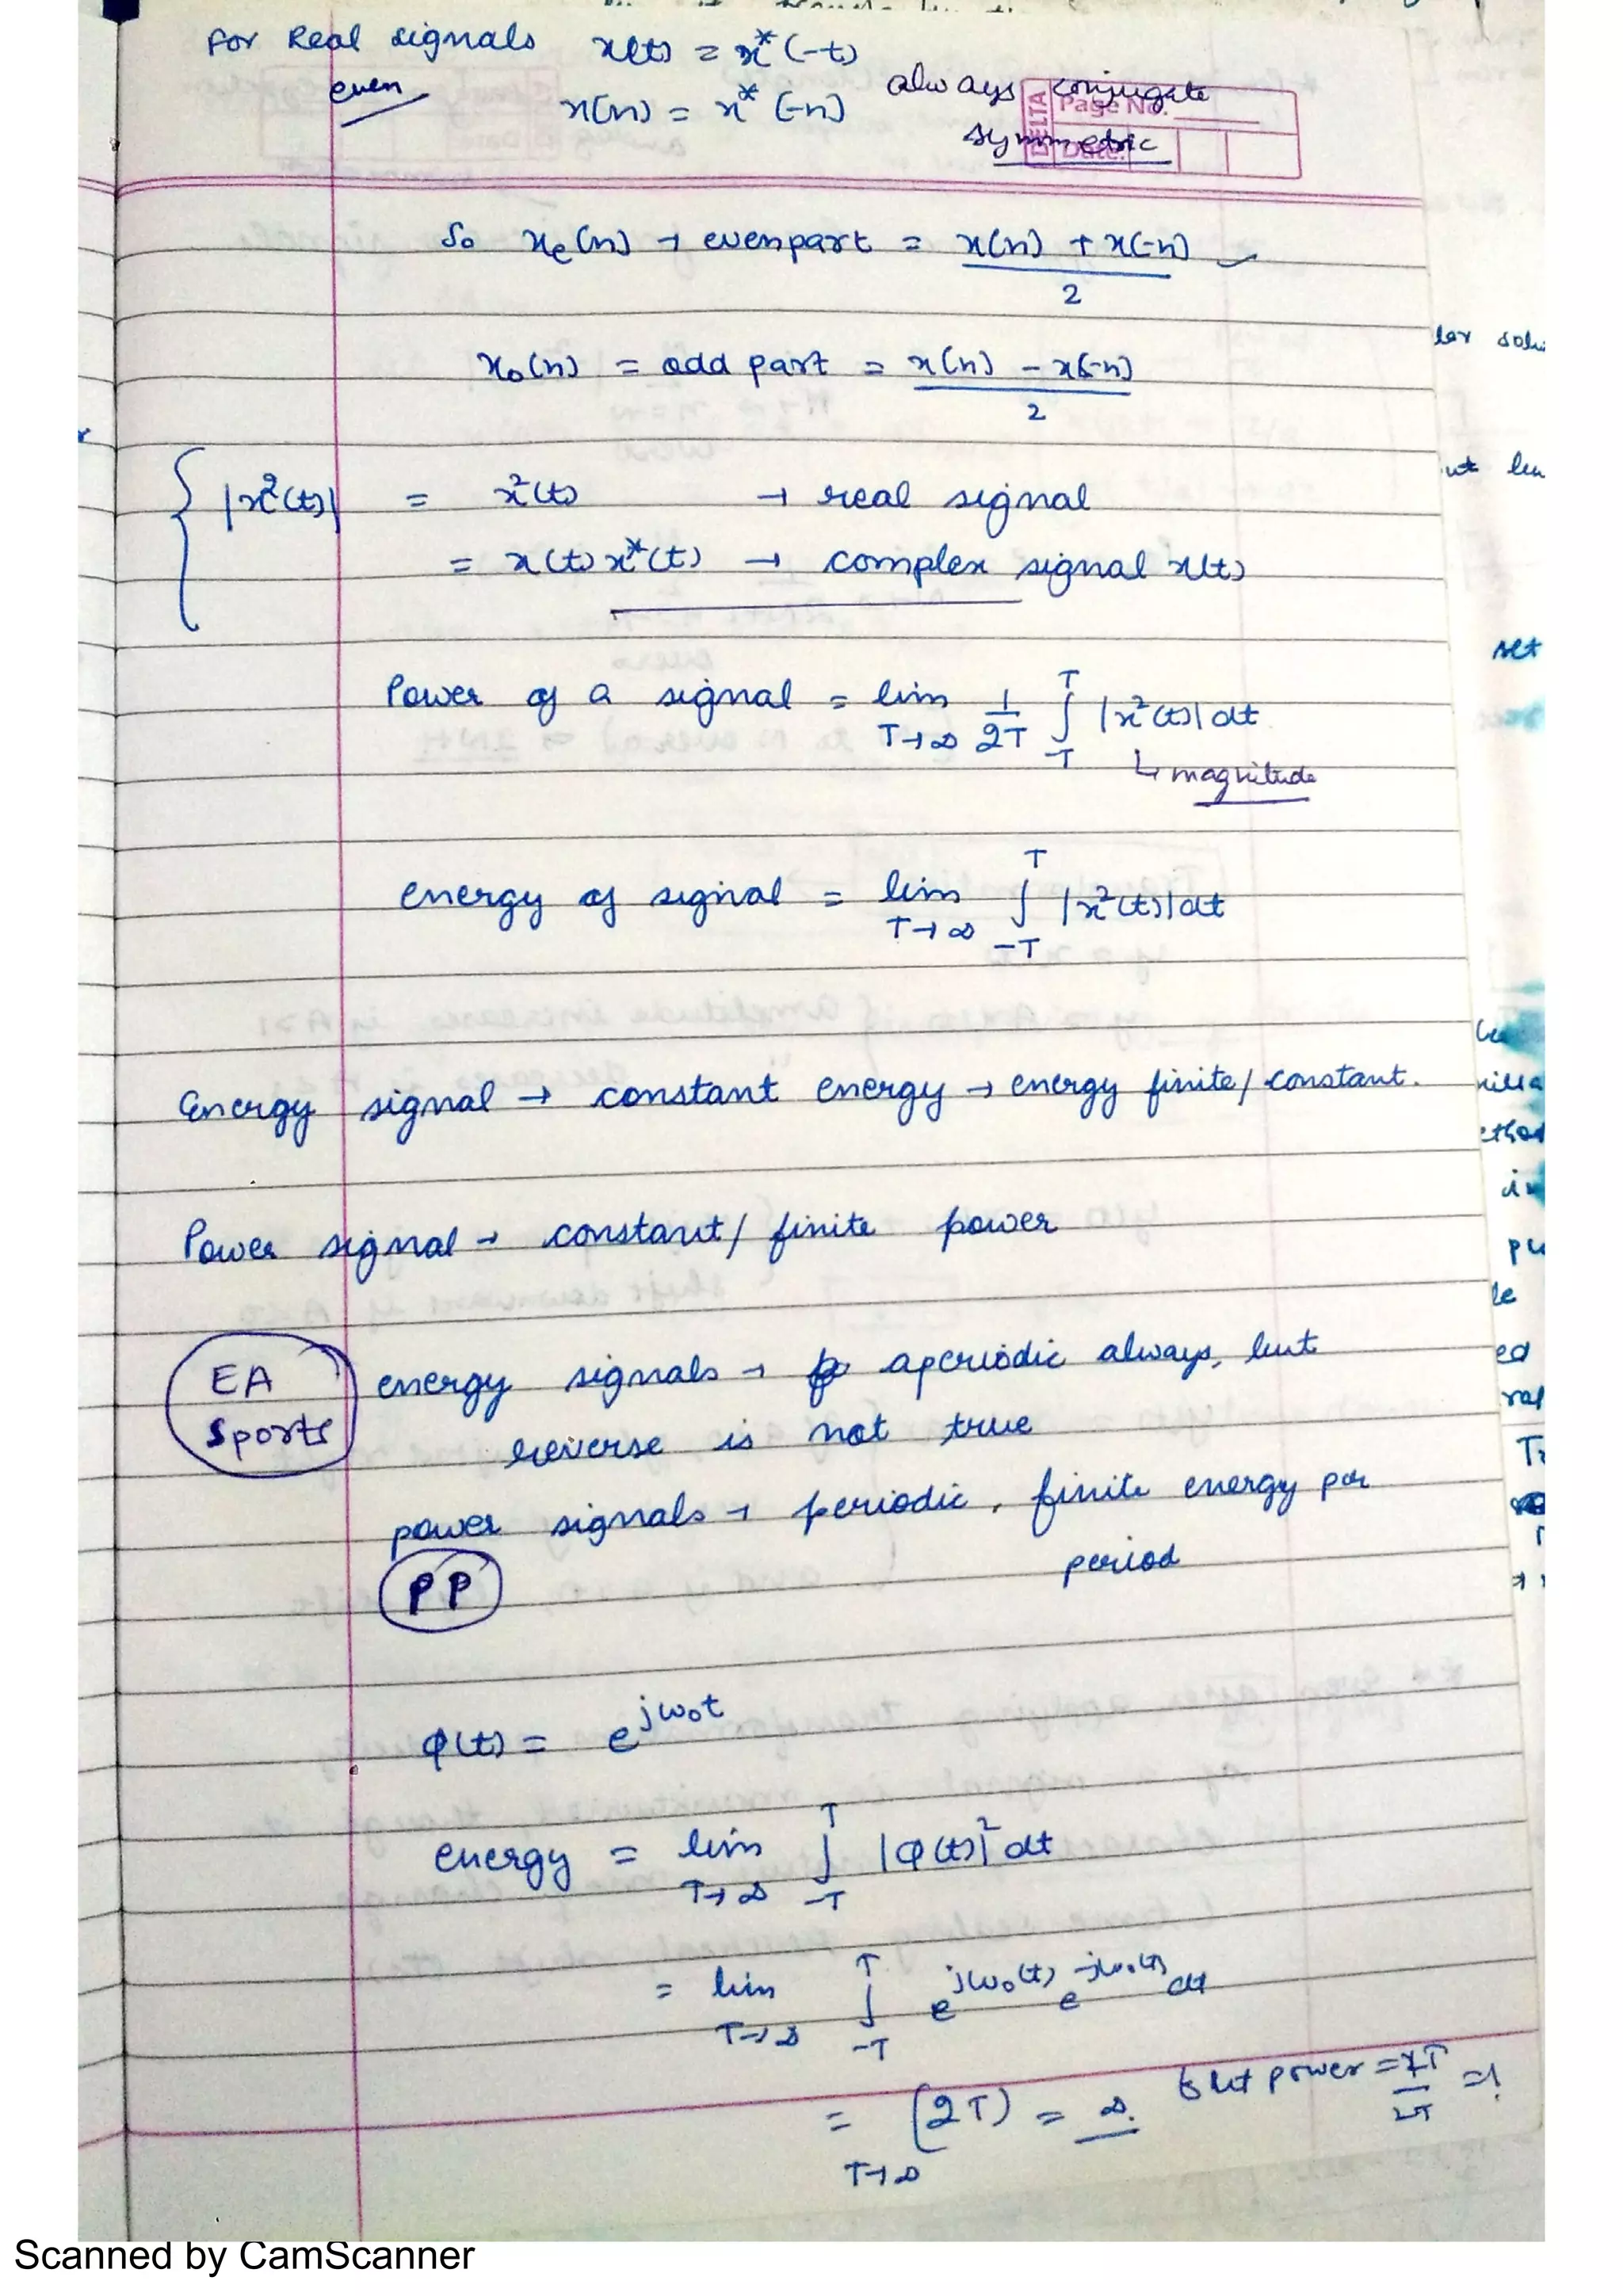 For Real signals x(t) = x*(-t)
even
x(n) = x*(-n) always conjugate
symmetric
DELTA Page No.
Date:
So xe(n) → even part = x(n) + x(-n)
2
xo(n) = odd part = x(n) - x(-n)
2
|x²(t)| = x²(t) → real signal
= x(t) x*(t) → complex signal x(t)
Power of a signal = lim T→∞ 1/2T ∫ -T T |x²(t)| dt
↳ magnitude
energy of signal = lim T→∞ ∫ -T T |x²(t)| dt
Energy signal → constant energy → energy finite/constant.
Power signal → constant/finite power
EA Sports
energy signals → aperiodic always, but
reverse is not true
power signals → periodic, finite energy per
period
PP
φ(t) = e^jω0t
energy = lim T→∞ ∫ -T T |φ(t)|² dt
= lim T→∞ ∫ -T T e^jω0(t) e^-jω0(t) dt
= (2T) = ∞. but power = 2T/2T = 1
T→∞
Scanned by CamScanner